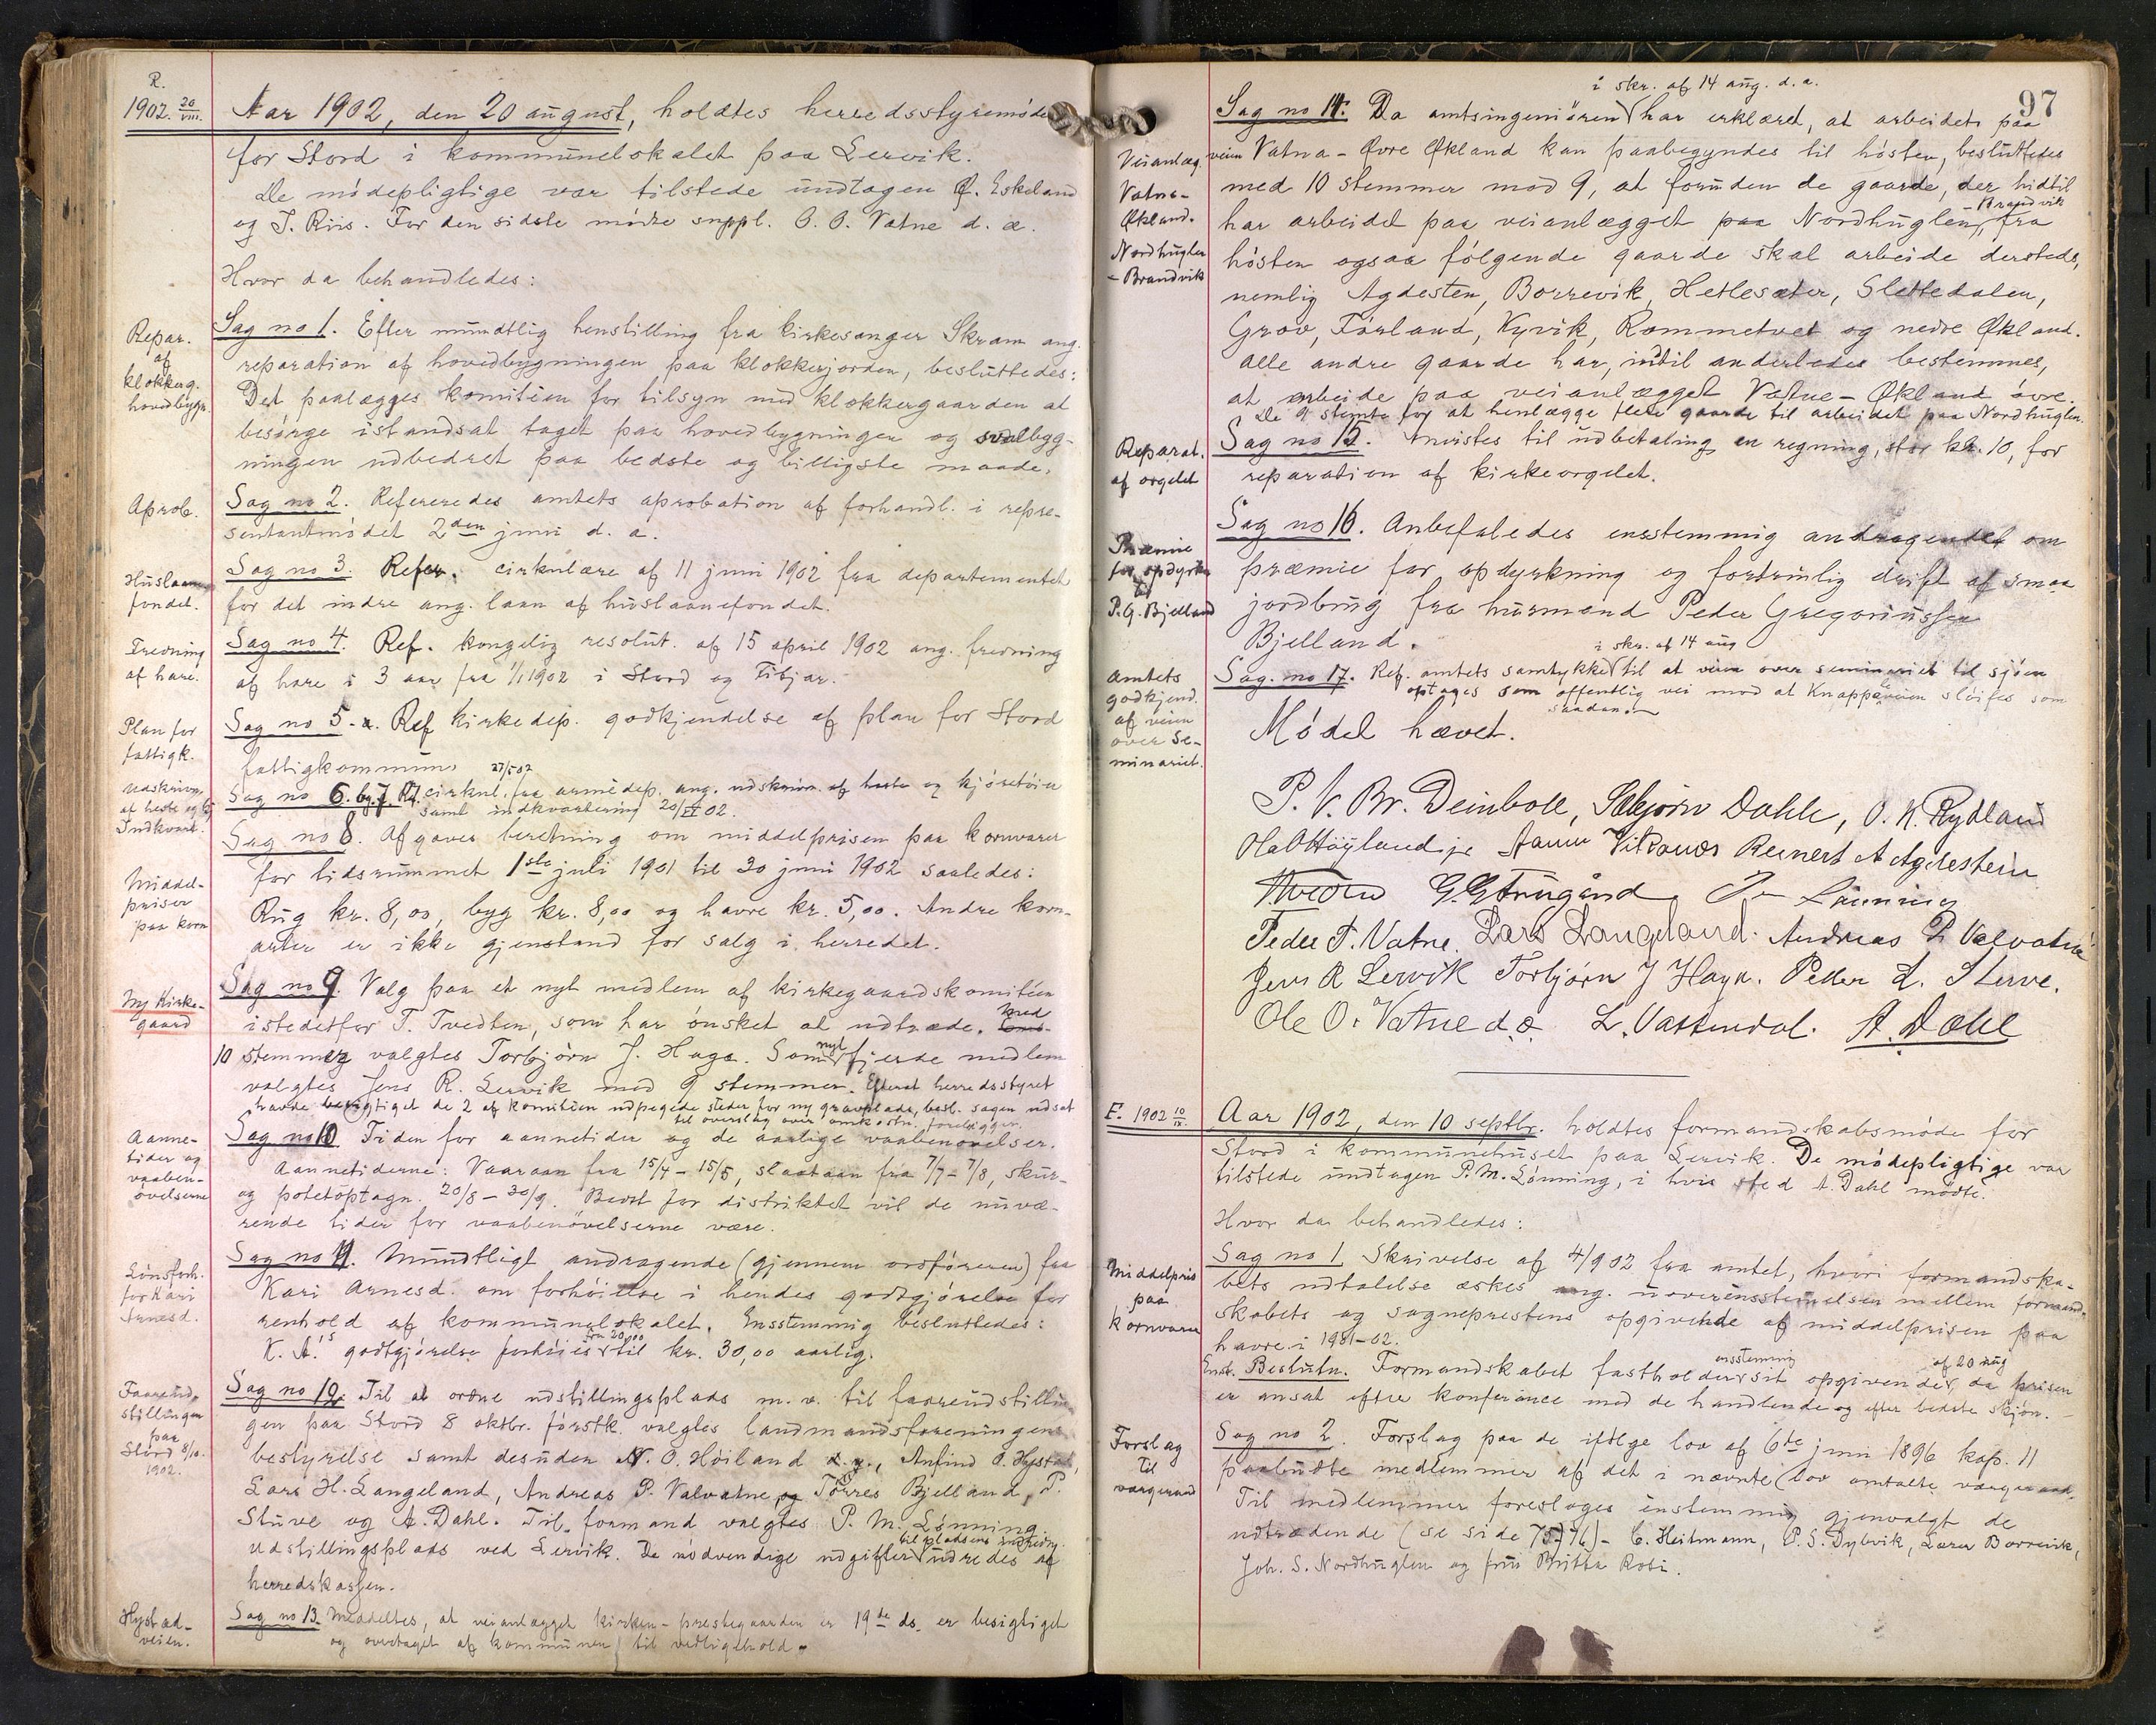 R.
1902. 20/VIII.
Aar 1902, den 20 august, holdtes herredsstyremøde
for Stord i kommunelokalet paa Lervik.
De mødepligtige var tilstede undtagen Ø. Eskeland
og J. Riis. For den sidste mødte suppl. O. O. Vatne d. æ.
Hvor da behandledes:
Repar.
af
klokkerg.
hovedbygn.
Sag no 1. Efter mundtlig henstilling fra kirkesanger Skram ang.
reparation af hovedbygningen paa klokkerjorden, besluttedes:
Det paalægges komitéen for tilsyn med klokkergaarden at
besørge istandsat taget paa hovedbygningen og svalbygg-
ningen udbedret paa bedste og billigste maade.
Aprob.
Sag no 2. Refereredes amtets aprobation af forhandl. i repre-
sentantmødet 2den juni d. a.
Huslaane
fondet.
Sag no 3. Refer. cirkulære af 11 juni 1902 fra departementet
for det indre ang. laan af huslaanefondet.
Fredning
af hare.
Sag no 4. Ref. kongelig resolut. af 15 april 1902 ang. fredning
af hare i 3 aar fra 1/1 1902 i Stord og Fitjar.
Plan for
fattigk.
Sag no 5. Ref kirkedep. godkjendelse af plan for Stord
fattigkommune
Udskrivn.
af heste og kj.
Indkvart.
27/5 02
Sag no 6. og 7. Ref. cirkul. fra armédep. ang. udskrivn. af heste og kjøretøier
samt indkvartering 20/VI 02.
Middel-
priser
paa korn
Sag no 8. Afgaves beretning om middelprisen paa kornvarer
for tidsrummet 1ste juli 1901 til 30 juni 1902 saaledes:
Rug kr. 8,00, byg kr. 8,00 og havre kr. 5,00. Andre korn-
arter er ikke gjenstand for salg i herredet.
Ny Kirke-
gaard
Sag no 9. Valg paa et nyt medlem af kirkegaardskomitéen
istedetfor T. Tvedten, som har ønsket at udtræde. Med
10 stemmer valgtes Torbjørn J. Haga. Som nyt fjerde medlem
valgtes Jens R. Lervik med 9 stemmer. Efterat herredsstyret
havde besigtiget de 2 af komitéen udpegede steder for ny gravplads, besl. sagen udsat
til overslag over omkostn. foreligger.
Aanne-
tider og
vaaben-
øvelserne
Sag no 10 Tiden for aannetider og de aarlige vaabenøvelser.
Aannetiderne: Vaaraan fra 15/4 - 15/5, slaataan fra 7/7 - 7/8, skur-
og potetoptagn. 20/8 - 30/9. Bedst for distriktet vil de nuvæ-
rende tider for vaabenøvelserne være.
Lønsforh.
for Kari
Arnesd.
Sag no 11. Mundtligt andragende (gjennem ordføreren) fra
Kari Arnesd. om forhøielse i hendes godtgjørelse for
renhold af kommunelokalet. Ensstemmig besluttedes:
K. A.'s godtgjørelse forhøies fra 20,00 til kr. 30,00 aarlig.
Faareud-
stillingen
paa
Stord 8/10.
1902.
Sag no 12. Til at ordne udstillingsplads m. v. til faareudstillin
gen paa Stord 8 oktbr. førstk. valgtes landmandsforeningens
bestyrelse samt desuden N. O. Høiland d. y., Anfind O. Hystad,
Lars H. Langeland, Andreas P. Valvatne, og Torres Bjelland, P.
Stuve og A. Dahl. Til formand valgtes P. M. Lønning
Udstillingsplads ved Lervik. De nødvendige udgifter til pladsens indredn. udredes af
herredskassen.
Hystad-
veien.
Sag no 13. Meddeltes, at veianlægget kirken - prestegaarden er 19de ds. er besigtiget
og overtaget af kommunen til vedligehold.
97
i skr. af 14 aug. d. a.
Veianlæg.
Vatna-
Økland.
Nordhuglen
- Brandvik
Sag no 14. Da amtsingeniøren har erklæret, at arbeidet paa
veien Vatna - Øvre Økland kan paabegyndes til høsten, besluttedes
med 10 stemmer mod 9, at foruden de gaarde, der hidtil
har arbeidet paa veianlægget paa Nordhuglen, Brandvik fra
høsten ogsaa følgende gaarde skal arbeide dersteds,
nemlig Agdesten, Borrevik, Hetlesæter, Slettedalen,
Grov, Førland, Kyvik, Rommetvet og nedre Økland.
Alle andre gaarde har, indtil anderledes bestemmes,
at arbeide paa veianlægget Vatne - Økland øvre.
De 9 stemte for at henlægge flere gaarde til arbeidet paa Nordhuglen.
Reparat.
af orgelet
Sag no 15. Anvistes til udbetaling en regning, stor kr. 10, for
reparation af kirkeorgelet.
Præmie
for opdyrkn
af
P. G. Bjelland
Sag no 16. Anbefaledes ensstemmig andragendet om
præmie for opdyrkning og fortrinlig drift af smaa
jordbrug fra husmand Peder Gregoriussen
Bjelland.
Amtets
godkjend.
af veien
over Se-
minariet.
i skr. af 14 aug
Sag. no 17. Ref. amtets samtykke til at veien over seminariet til sjøen
optages som offentlig vei mod at Knappeveien sløifes som
saadan.
Mødet hævet.
P. V. Br. Deinboll, Sæbjørn Dahle, O. K. Rydland
Ola O Høyland jr Aamu Vikanes Reinert A Agdestein
Tvedten G. G. Trugård P. M. Lønning
Peder P. Vatne. Lars Langeland. Andreas P. Valvatne
Jens R Lervik Torbjørn J Haga. Peder L. Stuve.
Ole O. Vatne d. æ. L. Vattendal. A. Dahl
F. 1902 10/IX.
Aar 1902, den 10 septbr. holdtes formandskabsmøde for
Stord i kommunehuset paa Lervik. De mødepligtige var
tilstede undtagen P. M. Lønning, i hvis sted A. Dahl mødte.
Hvor da behandledes:
Middelpris
paa
kornvarer
Sag no 1. Skrivelse af 4/9 02 fra amtet, hvori formandska-
bets udtalelse æskes ang. uoverensstemmelsen mellem formand-
skabets og sogneprestens opgivende af middelprisen paa
havre i 1901-02.
Enst. Beslutn. Formandskabet fastholder ensstemmig sit opgivende af 20 aug, da prisen
er ansat efter konferance med de handlende og efter bedste skjøn.
Forslag
til
vergeraad
Sag no 2. Forslag paa de ifølge lov af 6te juni 1896 kap. 11
paabudte medlemmer af det i nævnte lov omtalte vergeraad.
Til medlemmer foreslages enstemmig gjenvalgt de
udtrædende (se side 75-76) - C. Heitmann, P. S. Dybvik, Lærer Borrevik,
Joh. S. Nordhuglen og fru Britha Robi.